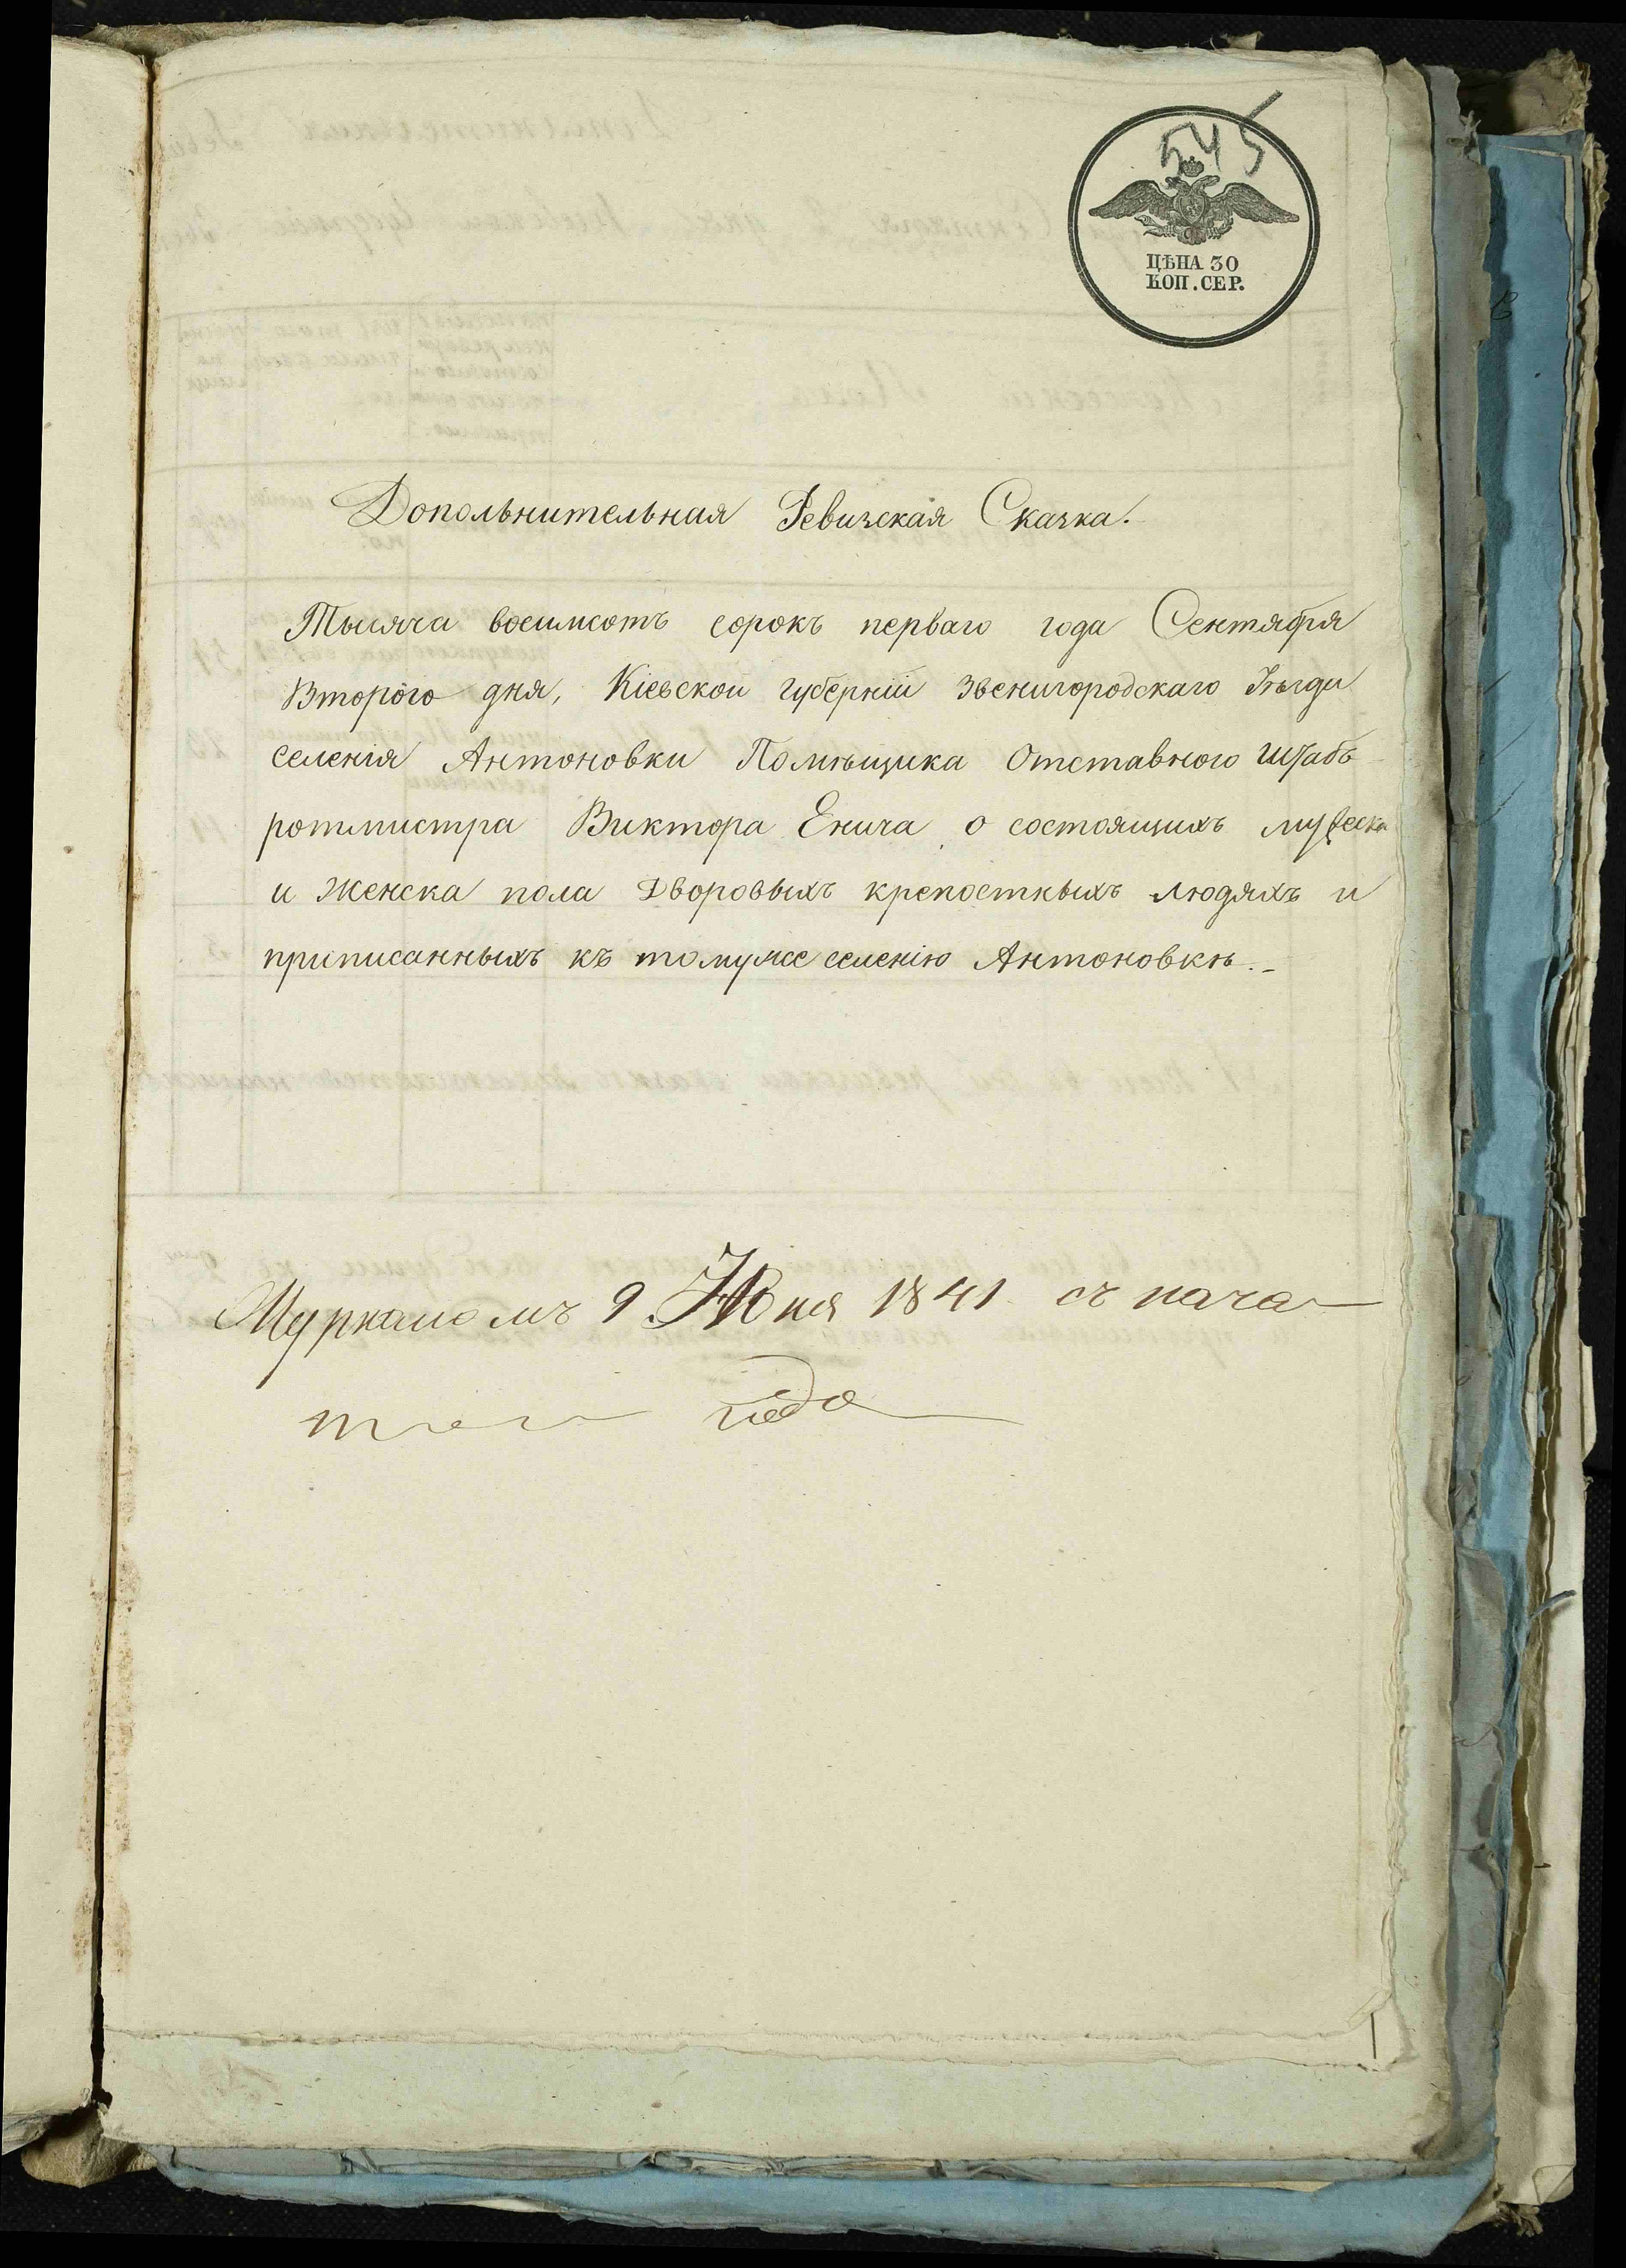 545
ЦѢНА 30
КОП. СЕР.
Допольнительная Ревизская Сказка.
Тысяча восимсотъ сорокъ перваго года Сентября
Второго дня, Кіевской губерніи Звенигородскаго Уѣзда
селенія Антоновки Помѣщика Отставного Штабъ
ротмистра Виктора Енича о состоящихъ мужеска
и женска пола Дворовыхъ крепостныхъ людяхъ и
приписанныхъ къ томужее селенію Антоновкѣ.-
9 1841 съ нача
года